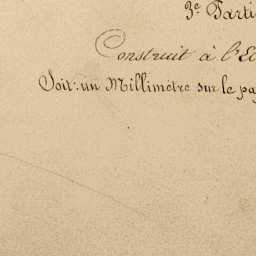 3e Parti
Construit à l'Ec
Soit: un Millimètre sur le pa